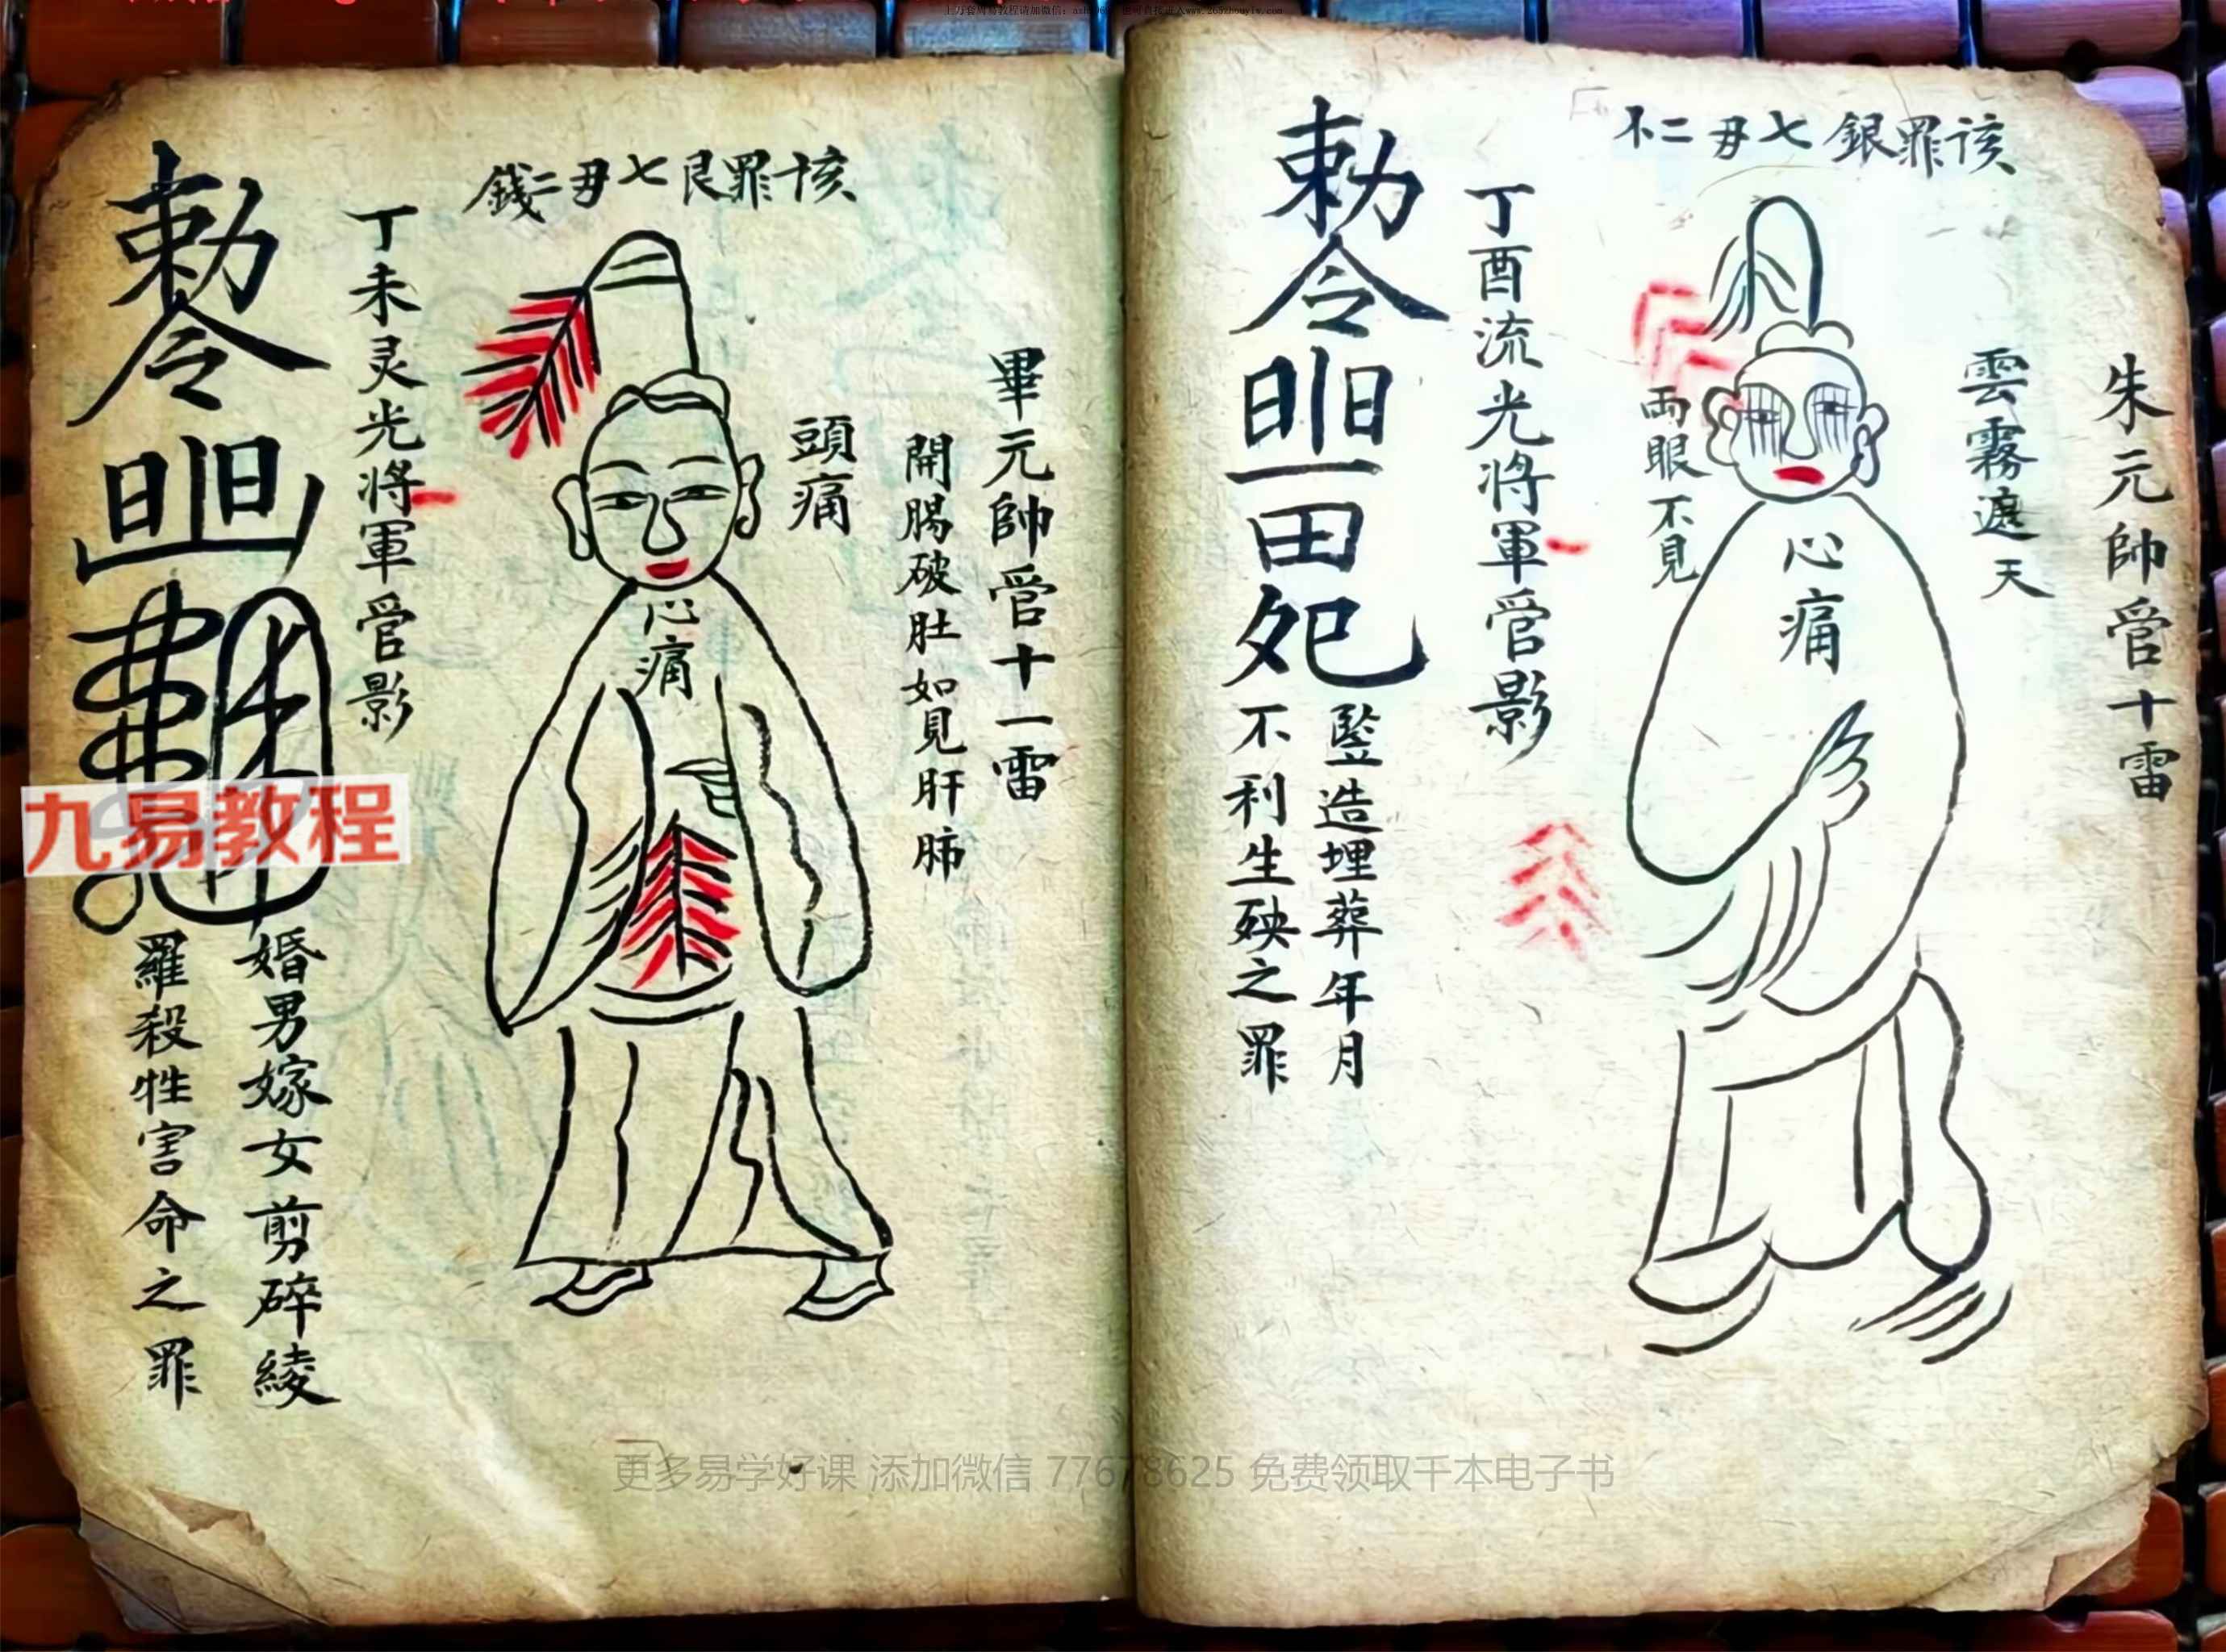 該罪銀七毋二不
朱元帥管十雷
雲霧遮天
兩眼不見
心痛
丁酉流光將軍管影
勅令
豎造埋葬年月
不利生殃之罪
該罪艮七毋二錢
畢元帥管十一雷
開腸破肚如見肝肺
頭痛
心痛
丁未灵光將軍管影
勅令
婚男嫁女剪碎綾
羅殺牲害命之罪
九易教程
更多易学好课 添加微信 77678625 免费领取千本电子书